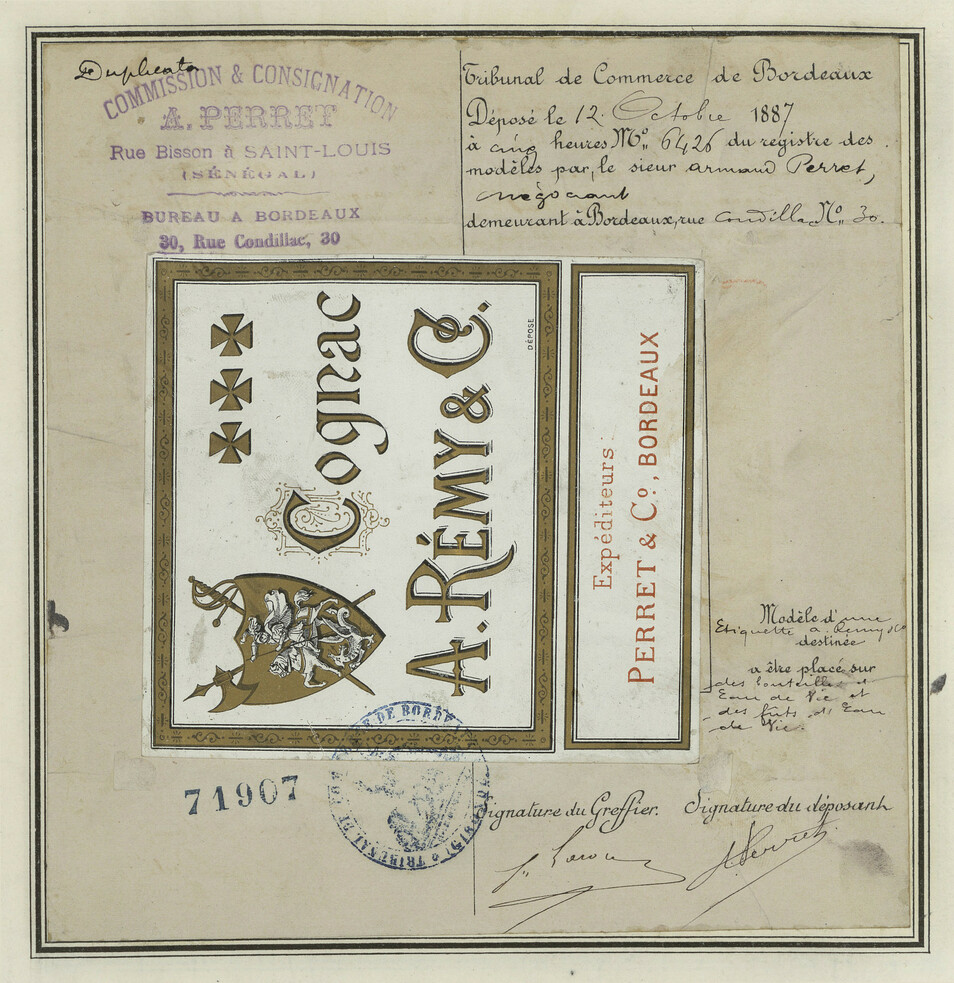 Duplicata
COMMISSION & CONSIGNATION
A. PERRET
Rue Bisson à SAINT-LOUIS
(SÉNÉGAL)
BUREAU A BORDEAUX
30, Rue Condillac, 30
Tribunal de Commerce de Bordeaux
Déposé le 12 Octobre 1887
à cinq heures Nº 6426 du registre des
modèles par, le sieur armand Perret,
négociant
demeurant à Bordeaux, rue Condillac Nº 30.
Cognac
A. RÉMY & Cº.
DÉPOSÉ
Expéditeurs:
PERRET & Cº., BORDEAUX
Modèle d'une
Etiquette A. Remy & Cº
destinée
a être placé sur
des bouteilles d'
Eau de Vie et
des futs d'Eau
de Vie.
71907
TRIBUNAL DE BORDEAUX
Signature du Greffier. Signature du déposant
A Perret